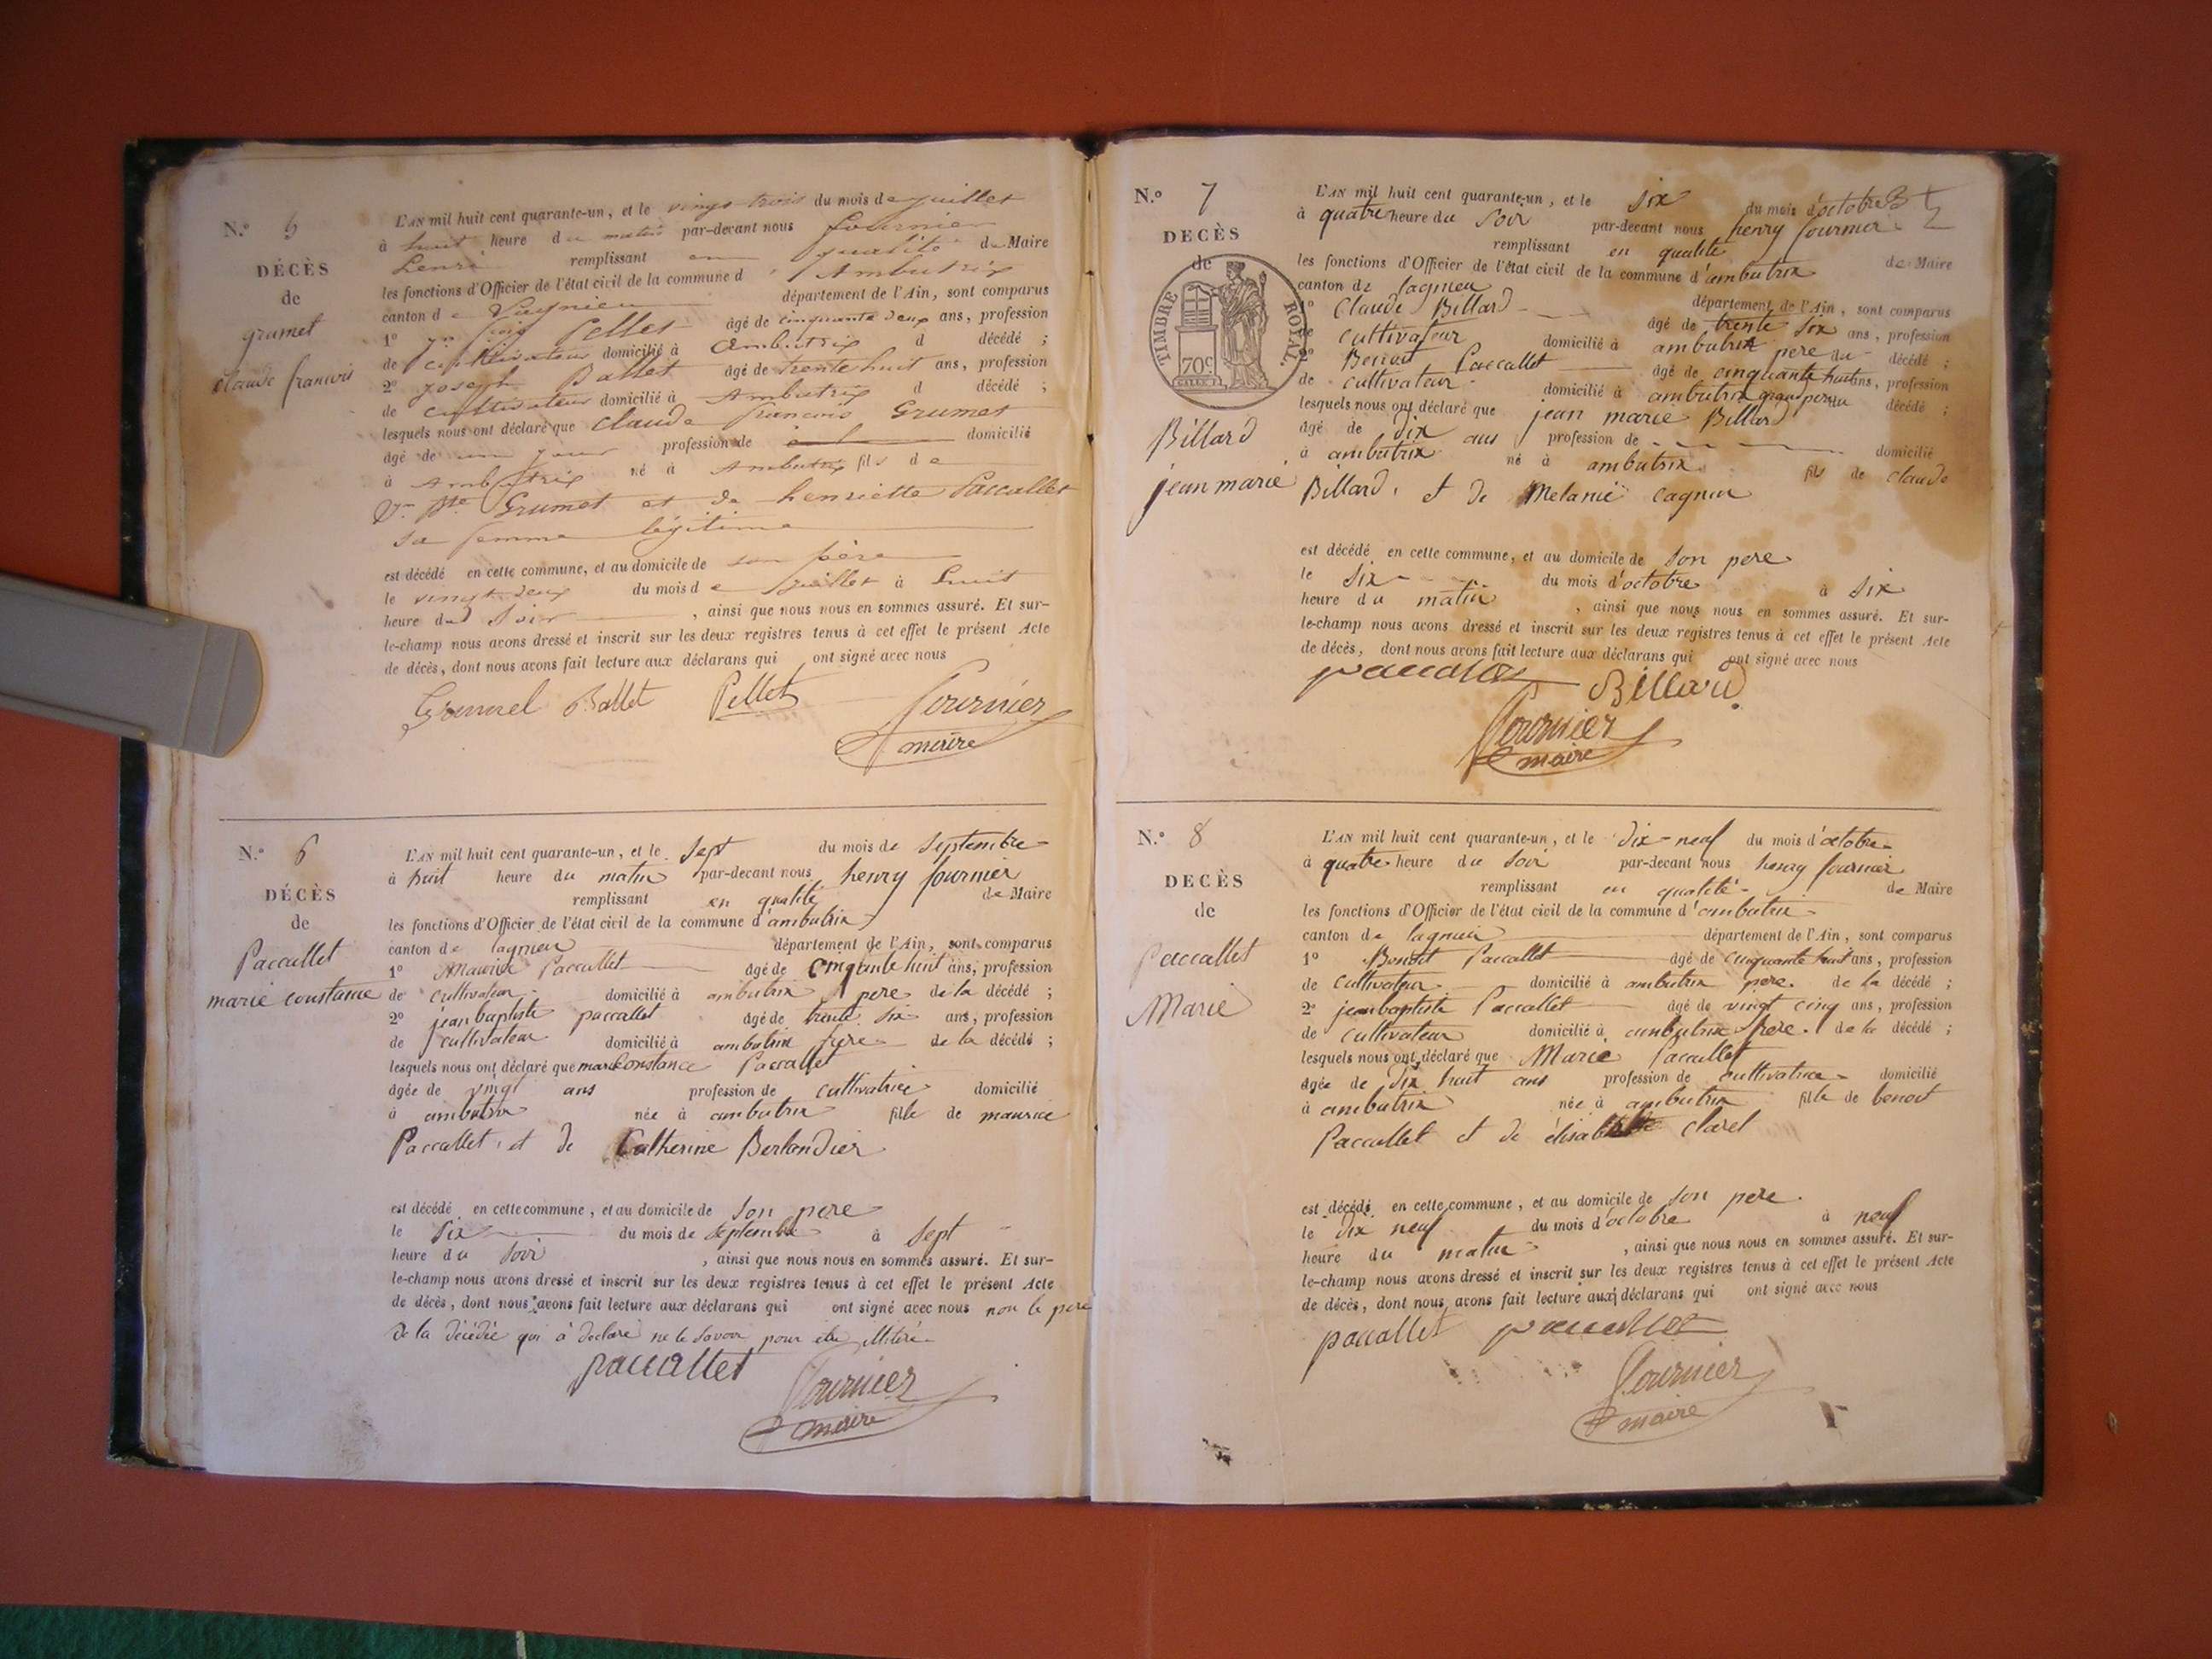 N.° 5
DÉCÈS
de
grumet
claude francois
L'AN mil huit cent quarante-un, et le vingt trois du mois de juillet
à huit heure du matin par-devant nous fournier
henri remplissant en qualité de Maire
les fonctions d'Officier de l'état civil de la commune d'Ambutrix
canton de Lagnieu département de l'Ain, sont comparus
1° Pellet âgé de cinquante deux ans, profession
de cultivateur domicilié à Ambutrix d décédé ;
2° joseph Ballet âgé de trente huit ans, profession
de cultivateur domicilié à Ambutrix d décédé ;
lesquels nous ont déclaré que claude francois Grumet
âgé de un jour profession de domicilié
à Ambutrix né à Ambutrix fils de
Grumet et de henriette Paccallet
sa femme légitime
est décédé en cette commune, et au domicile de son père
le vingt deux du mois de juillet à huit
heure du soir , ainsi que nous nous en sommes assuré. Et sur-
le-champ nous avons dressé et inscrit sur les deux registres tenus à cet effet le présent Acte
de décès, dont nous avons fait lecture aux déclarans qui ont signé avec nous
Grumel Ballet Pellet Fournier
maire
N.° 6
DÉCÈS
de
Paccallet
marie constance
L'AN mil huit cent quarante-un, et le sept du mois de septembre
à huit heure du matin par-devant nous henry fournier
remplissant en qualité de Maire
les fonctions d'Officier de l'état civil de la commune d'ambutrix
canton de lagnieu département de l'Ain, sont comparus
1° Maurice Paccallet âgé de cinqante huit ans, profession
de cultivateur domicilié à ambutrix pere de la décédé ;
2° jean baptiste paccallet âgé de trente six ans, profession
de cultivateur domicilié à ambutrix frere de la décédé ;
lesquels nous ont déclaré que marie Constance Paccallet
âgée de vingt ans profession de cultivatrice domicilié
à ambutrix née à ambutrix fille de maurice
Paccallet et de Catherine Berlandier
est décédé en cette commune, et au domicile de son pere
le six du mois de septembre à sept
heure du soir , ainsi que nous nous en sommes assuré. Et sur-
le-champ nous avons dressé et inscrit sur les deux registres tenus à cet effet le présent Acte
de décès, dont nous avons fait lecture aux déclarans qui ont signé avec nous non le pere
de la décédée qui a declaré ne le savoir pour être illitéré
paccallet Fournier
maire
N.° 7
DECÈS
de
TIMBRE ROYAL.
70c
Billard
jean marie
L'AN mil huit cent quarante-un, et le six du mois d'octobre
à quatre heure du soir par-devant nous henry fournier
remplissant en qualité de Maire
les fonctions d'Officier de l'état civil de la commune d'ambutrix
canton de lagnieu département de l'Ain, sont comparus
1° Claude Billard âgé de trente six ans, profession
de cultivateur domicilié à ambutrix pere du décédé ;
2° Benoit Paccallet âgé de cinquante huit ans, profession
de cultivateur domicilié à ambutrix grand pere du décédé ;
lesquels nous ont déclaré que jean marie Billard
âgé de dix ans profession de domicilié
à ambutrix né à ambutrix fils de claude
Billard et de Melanie cagnin
est décédé en cette commune, et au domicile de son pere
le six du mois d'octobre à six
heure du matin , ainsi que nous nous en sommes assuré. Et sur-
le-champ nous avons dressé et inscrit sur les deux registres tenus à cet effet le présent Acte
de décès, dont nous avons fait lecture aux déclarans qui ont signé avec nous
paccallet Billard
Fournier
maire
N.° 8
DECÈS
de
Paccallet
Marie
L'AN mil huit cent quarante-un, et le dix-neuf du mois d'octobre
à quatre heure du soir par-devant nous henry fournier
remplissant en qualité de Maire
les fonctions d'Officier de l'état civil de la commune d'ambutrix
canton de lagnieu département de l'Ain, sont comparus
1° Benoit Paccallet âgé de cinquante huit ans, profession
de cultivateur domicilié à ambutrix pere de la décédé ;
2° jean baptiste Paccallet âgé de vingt cinq ans, profession
de cultivateur domicilié à ambutrix frere de la décédé ;
lesquels nous ont déclaré que Marie Paccallet
âgée de dix huit ans profession de cultivatrice domicilié
à ambutrix née à ambutrix fille de benoit
Paccallet et de élisabethe claret
est décédé en cette commune, et au domicile de son pere
le dix neuf du mois d'octobre à neuf
heure du matin , ainsi que nous nous en sommes assuré. Et sur-
le-champ nous avons dressé et inscrit sur les deux registres tenus à cet effet le présent Acte
de décès, dont nous avons fait lecture aux déclarans qui ont signé avec nous
paccallet paccallet
Fournier
maire